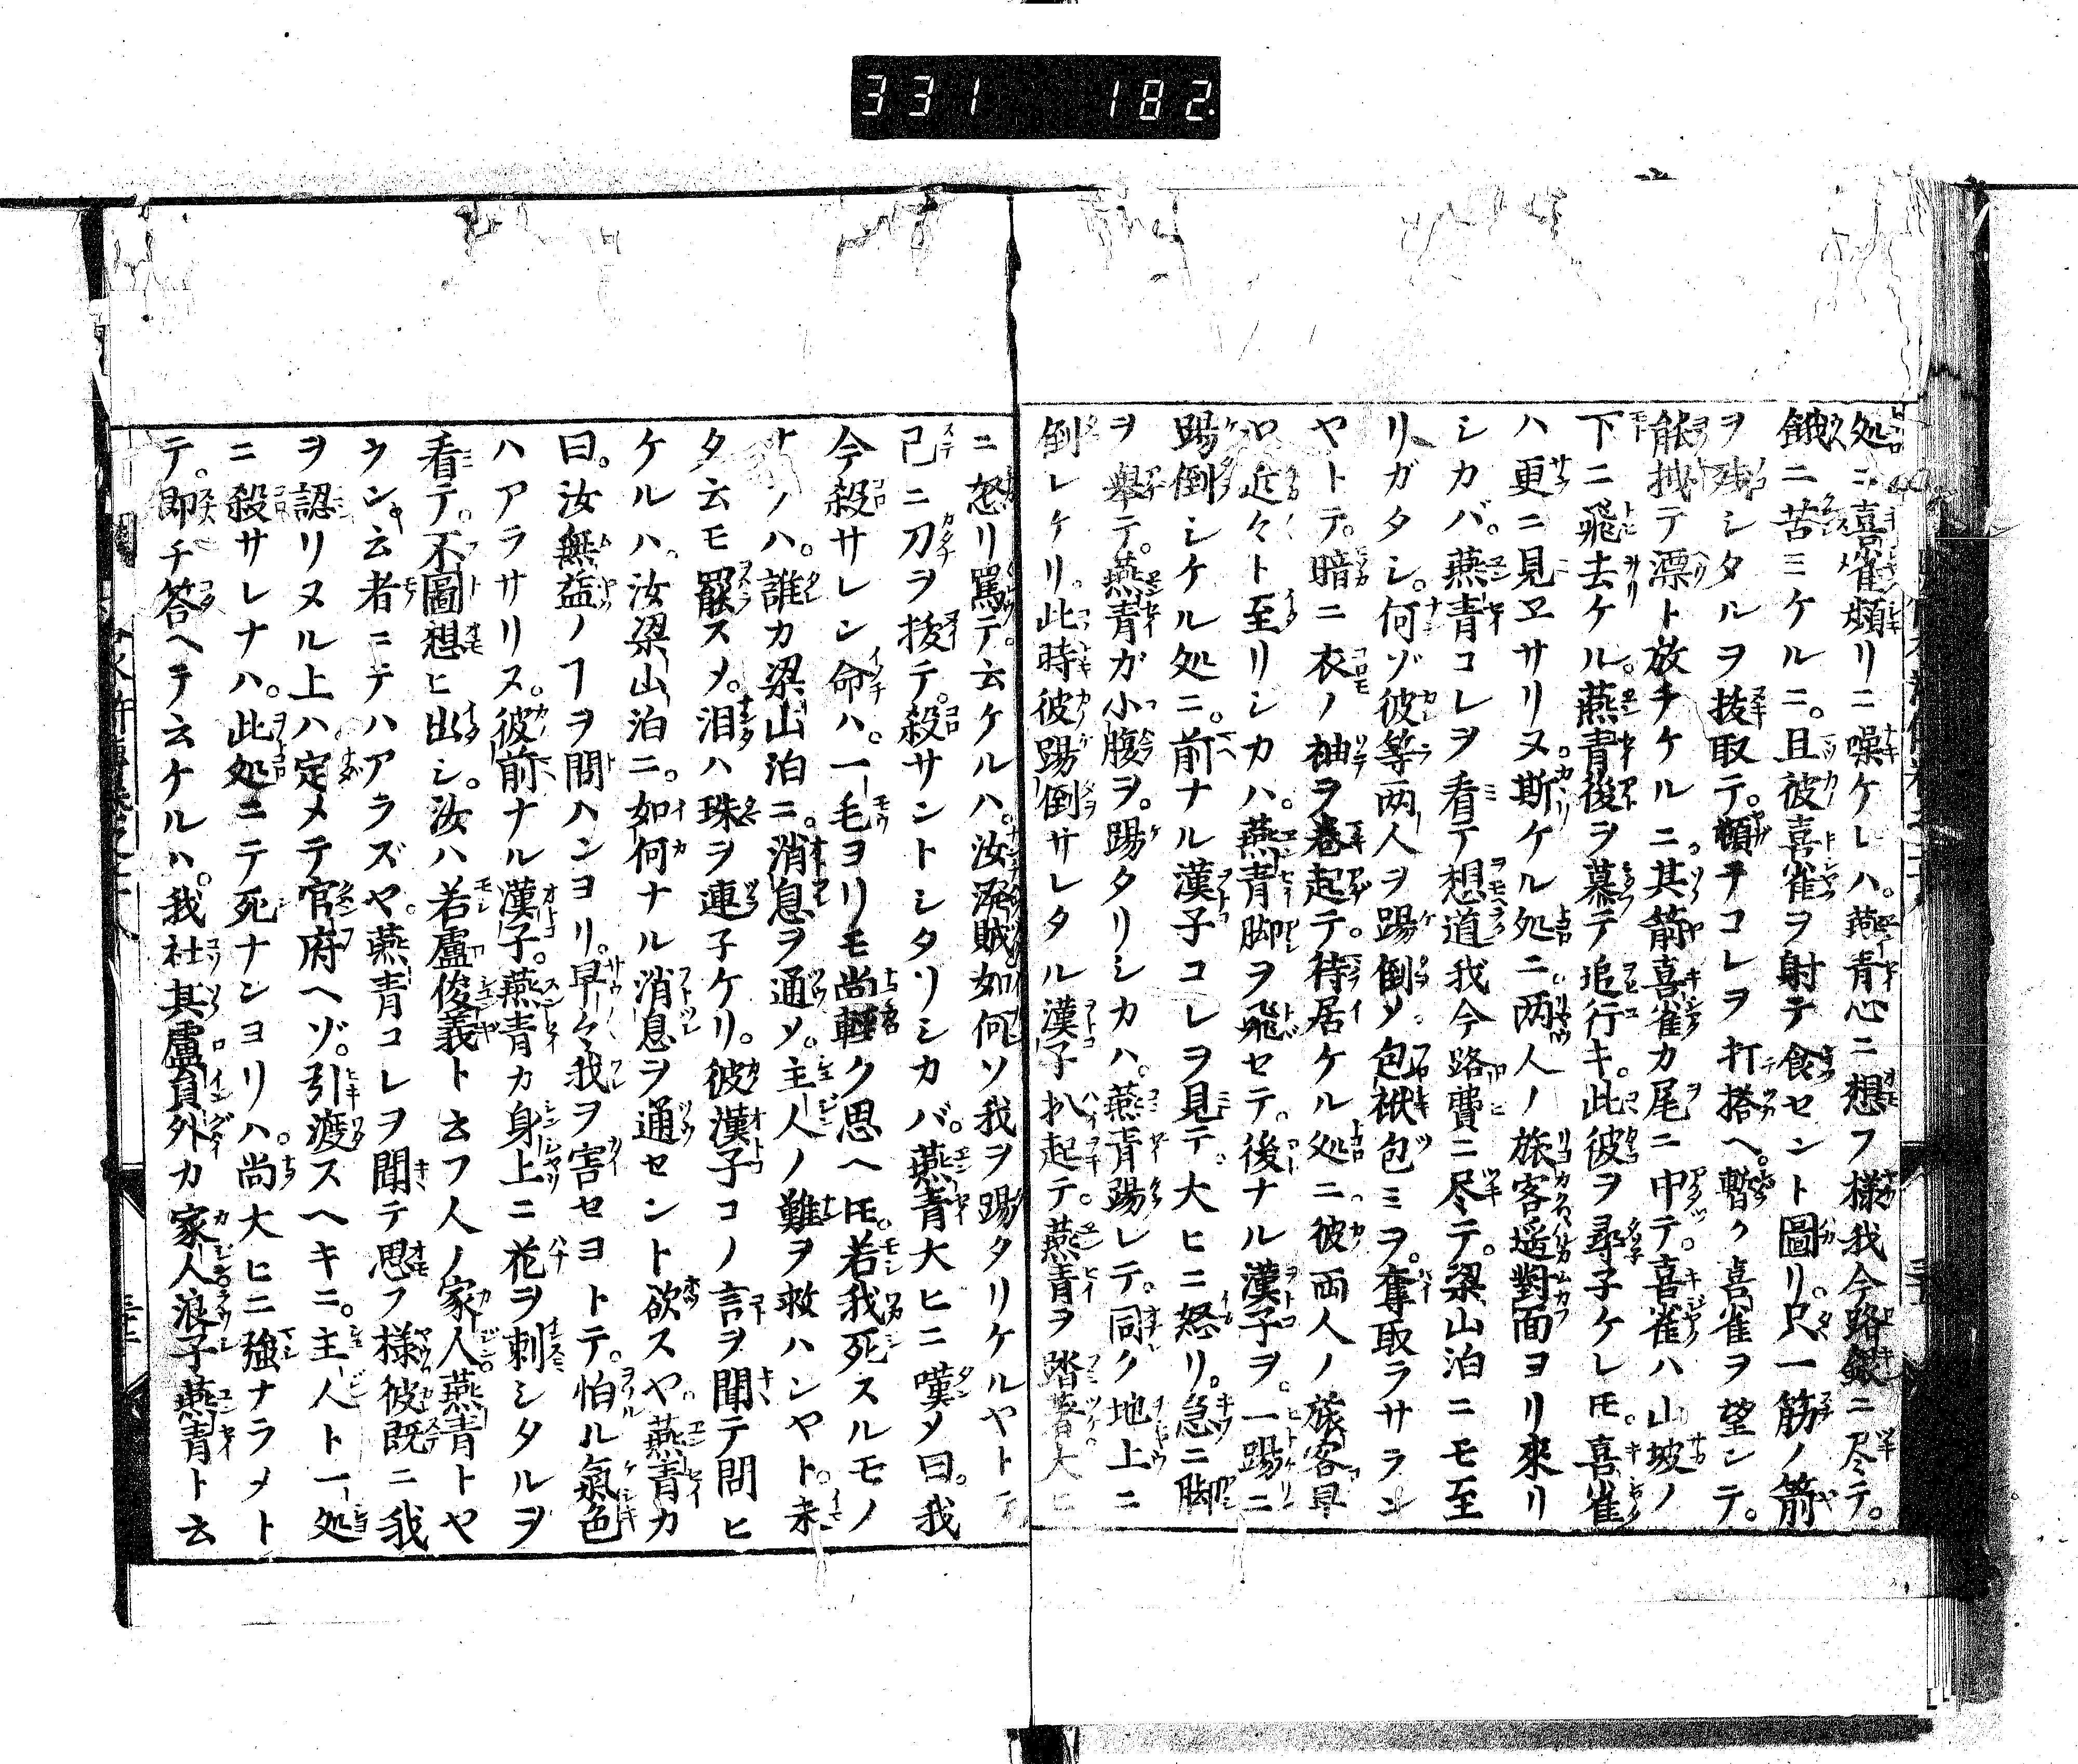 331 182
処ニ喜雀頻リニ噪ケレハ。燕青心ニ想フ様我今路銀ニ尽テ。
餓ニ苦ミケルニ。且彼喜雀ヲ射テ食セント圖リ。只一筋ノ箭
ヲ残シタルヲ抜取テ。頓テコレヲ打搭ヘ。暫ク喜雀ヲ望ンテ。
能拽テ漂ト放チケルニ。其箭喜雀カ尾ニ中テ。喜雀ハ山坡ノ
下ニ飛去ケル。燕青後ヲ慕テ追行キ。此彼ヲ尋子ケレ𪜈。喜雀
ハ更ニ見ヱサリヌ。斯ケル処ニ両人ノ旅客遥對面ヨリ來リ
シカバ。燕青コレヲ看テ想道我今路費ニ尽テ。梁山泊ニモ至
リガタシ。何ゾ彼等両人ヲ踢倒メ。包袱包ミヲ。奪取ラサラン
ヤトテ。暗ニ衣ノ袖ヲ巻起テ。待居ケル処ニ。彼両人ノ旅客早
ヤ近々ト至リシカハ。燕青脚ヲ飛セテ。後ナル漢子ヲ。一踢ニ
踢倒シケル処ニ。前ナル漢子コレヲ見テ。大ヒニ怒リ。急ニ脚
ヲ舉テ。燕青ガ小腹ヲ。踢タリシカハ。燕青踢レテ。同ク地上ニ
倒レケリ。此時彼踢倒サレタル漢子扒起テ。燕青ヲ踏著大ヒ
ニ怒リ罵テ。云ケルハ。汝潑賊如何ソ我ヲ踢タリケルヤトテ
己ニ刀ヲ抜テ。殺サントシタリシカバ。燕青大ヒニ嘆メ曰。我
今殺サレン命ハ。一毛ヨリモ尚輕ク思ヘ𪜈。若我死スルモノ
ナノハ。誰カ梁山泊ニ。消息ヲ通メ。主人ノ難ヲ救ハンヤト。未
タ云モ罷スメ。泪ハ珠ヲ連子ケリ。彼漢子コノ言ヲ聞テ問ヒ
ケルハ。汝梁山泊ニ。如何ナル消息ヲ通セント欲スヤ。燕青カ
曰。汝無益ノヿヲ問ハンヨリ。早々我ヲ害セヨトテ。怕ル氣色
ハアラサリヌ。彼前ナル漢子。燕青カ身上ニ花ヲ刺シタルヲ
看テ。不圖想ヒ出シ。汝ハ若盧俊義ト云フ人ノ家人燕青トヤ
ウン云者ニテハアラズヤ。燕青コレヲ聞テ思フ様彼既ニ我
ヲ認リヌル上ハ。定メテ官府ヘゾ。引渡スヘキニ。主人ト一処
ニ殺サレナハ。此処ニテ死ナンヨリハ。尚大ヒニ強ナラメト
テ。即チ答ヘテ云ケルハ。我社其盧員外カ家人浪子燕青ト云